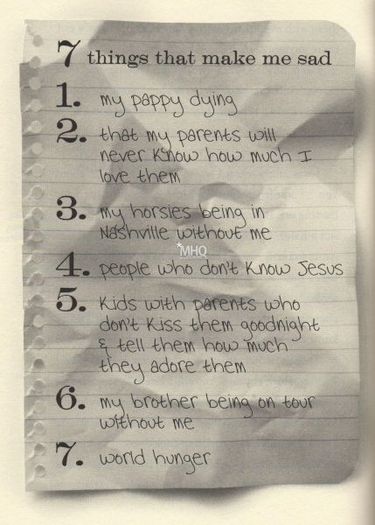 7 things that make me sad
1. my pappy dying
2. that my parents will
never know how much I
love them
3. my horsies being in
Nashville without me
*MHQ
4. people who don't know Jesus
5. Kids with parents who
don't kiss them goodnight
& tell them how much
they adore them
6. my brother being on tour
without me
7. world hunger